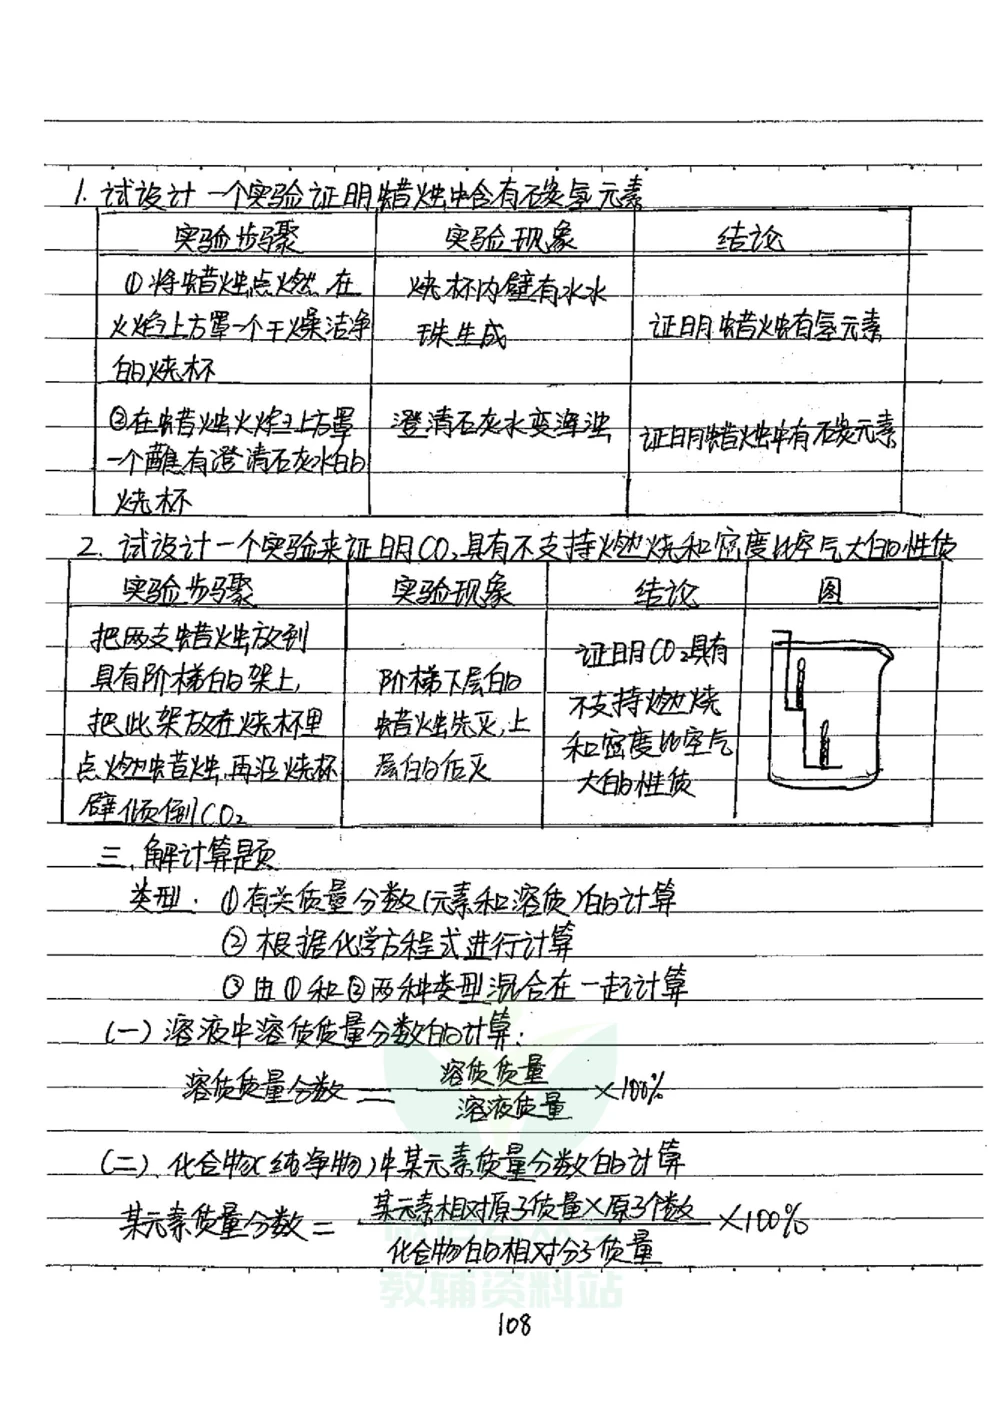 1. 试设计一个实验证明蜡烛中含有碳氢元素
实验步骤 实验现象 结论
①将蜡烛点燃,在 烧杯内壁有水水
火焰上方罩一个干燥洁净 珠生成 证明蜡烛有氢元素
的烧杯
②在蜡烛火焰上方罩 澄清石灰水变浑浊 证明蜡烛中有碳元素
一个蘸有澄清石灰水的
烧杯
2. 试设计一个实验来证明CO₂具有不支持燃烧和密度比空气大的性质
实验步骤 实验现象 结论 图
把两支蜡烛放到 证明CO₂具有
具有阶梯的架上, 阶梯下层的 不支持燃烧
把此架放在烧杯里 蜡烛先灭,上 和密度比空气
点燃蜡烛,再沿烧杯 层的后灭 大的性质
壁倾倒CO₂
三、解计算题
类型:①有关质量分数(元素和溶质)的计算
②根据化学方程式进行计算
③由①和②两种类型混合在一起计算
(一)溶液中溶质质量分数的计算:
溶质质量分数=溶质质量/溶液质量×100%
(二)、化合物(纯净物)中某元素质量分数的计算
某元素质量分数=某元素相对原子质量×原子个数/化合物的相对分子质量×100%
教辅资料站
108